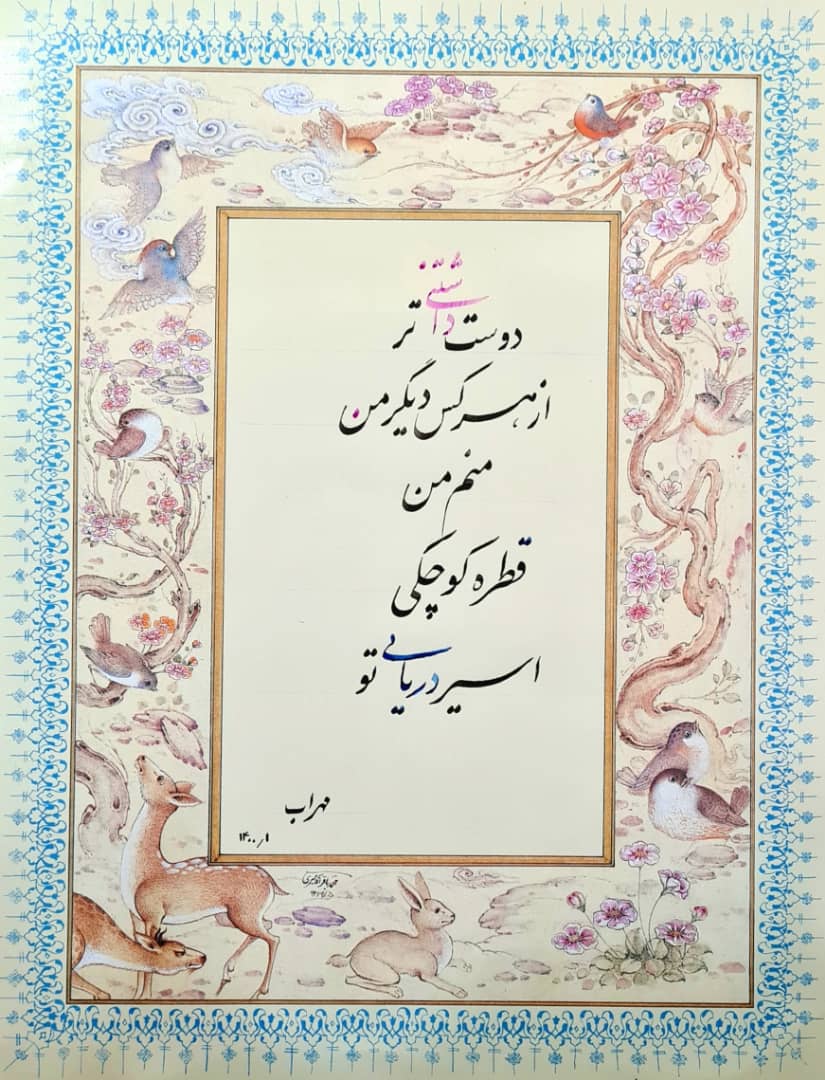 دوست داشتنی تر
از هر کس دیگر من
منم من
قطره کوچکی
اسیر دریایی تو
مهراب
۱۴۰۰٫۱